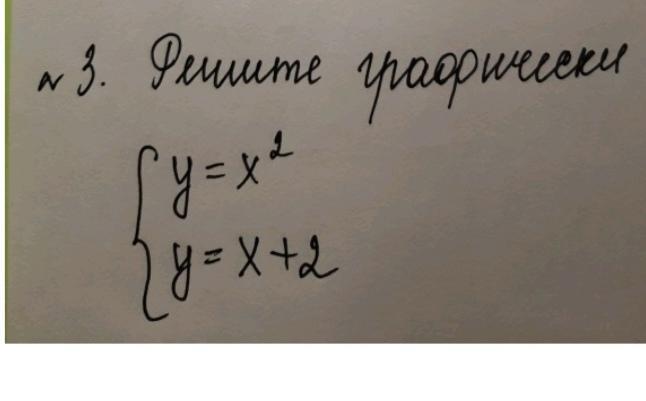 № 3. Решите графически
y = x²
y = x + 2